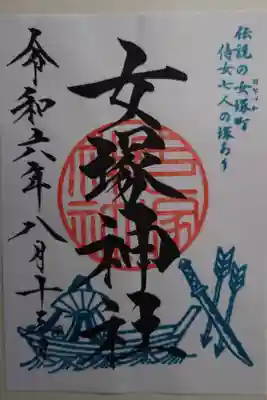 伝説の女塚町
侍女七人の塚あり
女塚神社
令和六年八月十三日